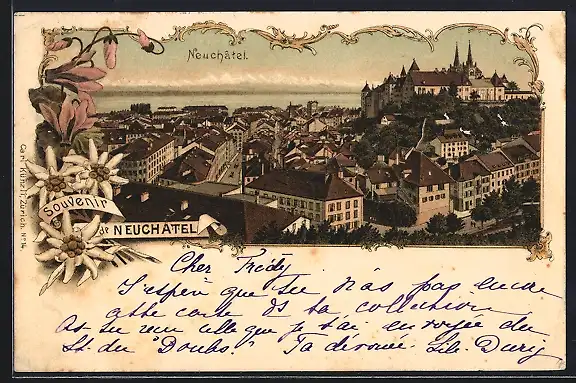 Neuchâtel.
Souvenir
de NEUCHATEL
Carl Künzli, Zürich. No
Cher Frédy
J'espère que tu n'as pas encore
cette carte ds ta collection
As-tu reçu celle que je t'ai envoyée du
St. du "Doubs." Ta dévouée. Lili